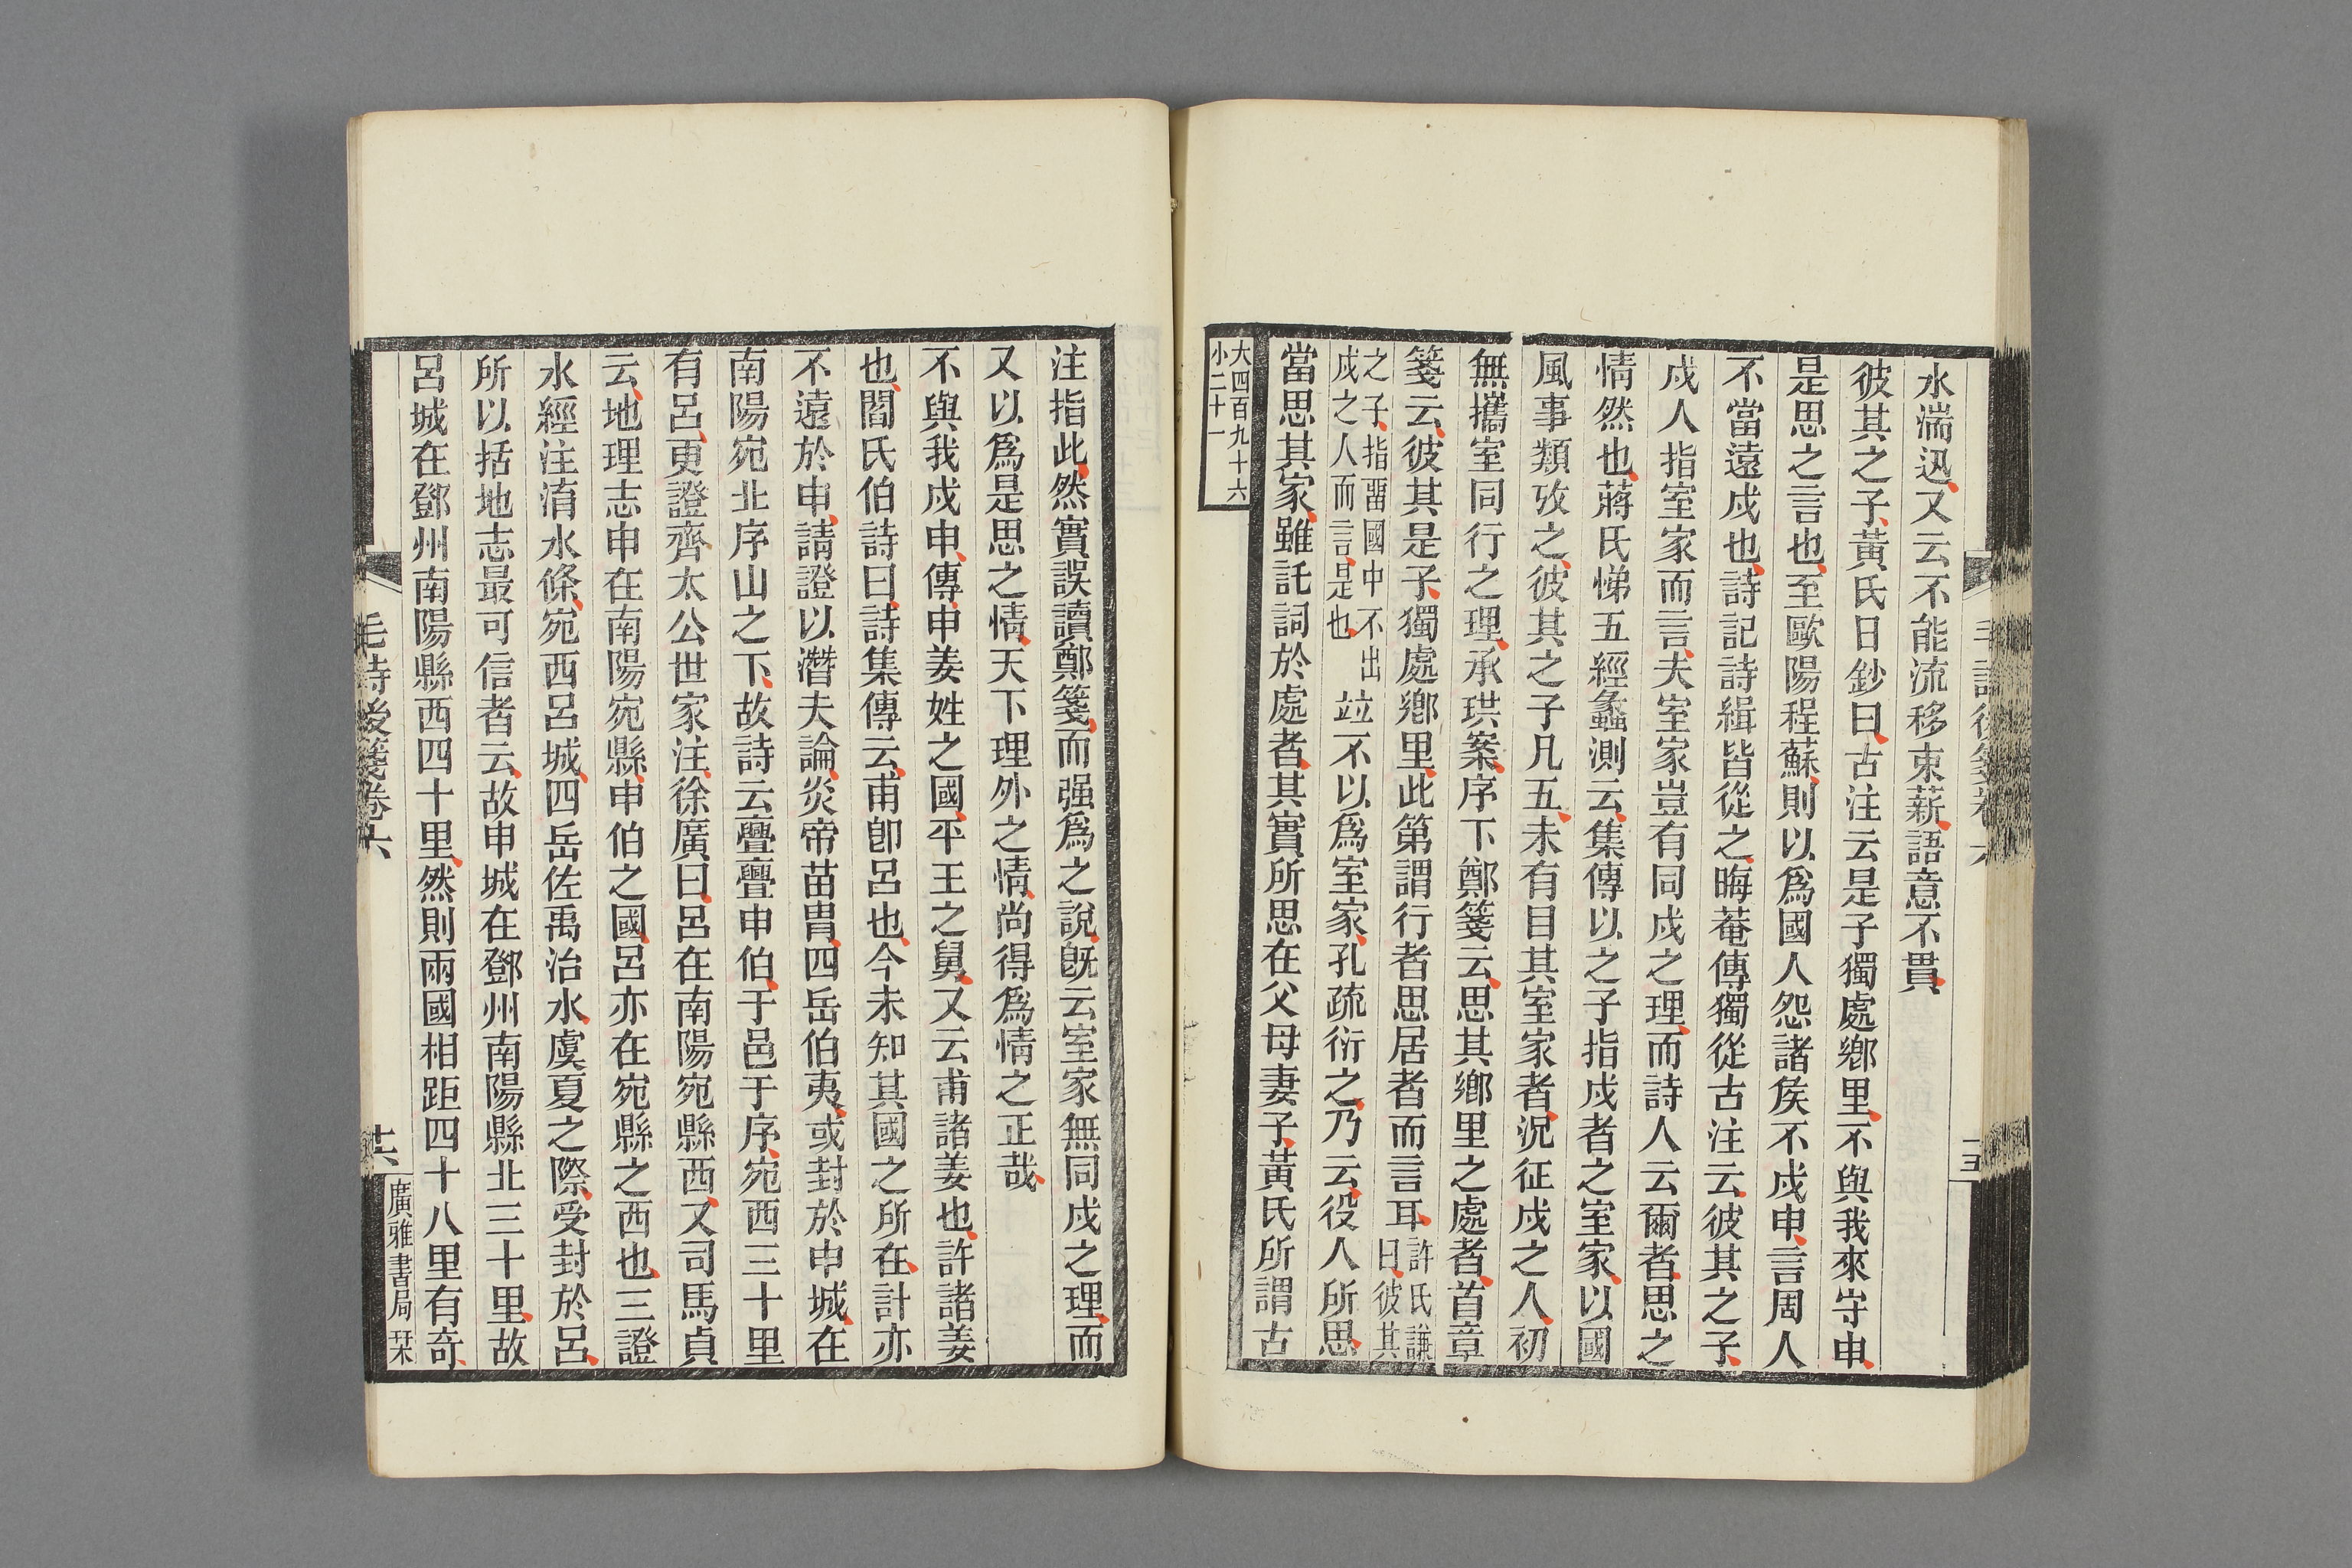 水湍迅又云不能流移束薪語意不貫
彼其之子黃氏日鈔曰古注云是子獨處鄉里不與我來守申
是思之言也至歐陽程蘇則以爲國人怨諸矦不戍申言周人
不當遠戍也詩記詩緝皆從之晦菴傳獨從古注云彼其之子
戍人指室家而言夫室家豈有同戍之理而詩人云爾者思之
情然也蔣氏悌五經蠡測云集傳以之子指戍者之室家以國
風事類攷之彼其之子凡五未有目其室家者況征戍之人初
無攜室同行之理承珙案序下鄭箋云思其鄉里之處者首章
箋云彼其是子獨處鄉里此第謂行者思居者而言耳許氏謙曰彼其
之子指畱國中不出戍之人而言是也竝不以爲室家孔疏衍之乃云役人所思
當思其家雖託詞於處者其實所思在父母妻子黃氏所謂古
大四百九十六
小二十一
注指此然實誤讀鄭箋而强爲之說旣云室家無同戍之理而
又以爲是思之情天下理外之情尚得爲情之正哉
不與我戍申傳申姜姓之國平王之舅又云甫諸姜也許諸姜
也閻氏伯詩曰詩集傳云甫卽呂也今未知其國之所在計亦
不遠於申請證以潛夫論炎帝苗冑四岳伯夷或封於申城在
南陽宛北序山之下故詩云亹亹申伯于邑于序宛西三十里
有呂更證齊太公世家注徐廣曰呂在南陽宛縣西又司馬貞
云地理志申在南陽宛縣申伯之國呂亦在宛縣之西也三證
水經注淯水條宛西呂城四岳佐禹治水虞夏之際受封於呂
所以括地志最可信者云故申城在鄧州南陽縣北三十里故
呂城在鄧州南陽縣西四十里然則兩國相距四十八里有奇
毛詩後箋卷六
十六
廣雅書局栞